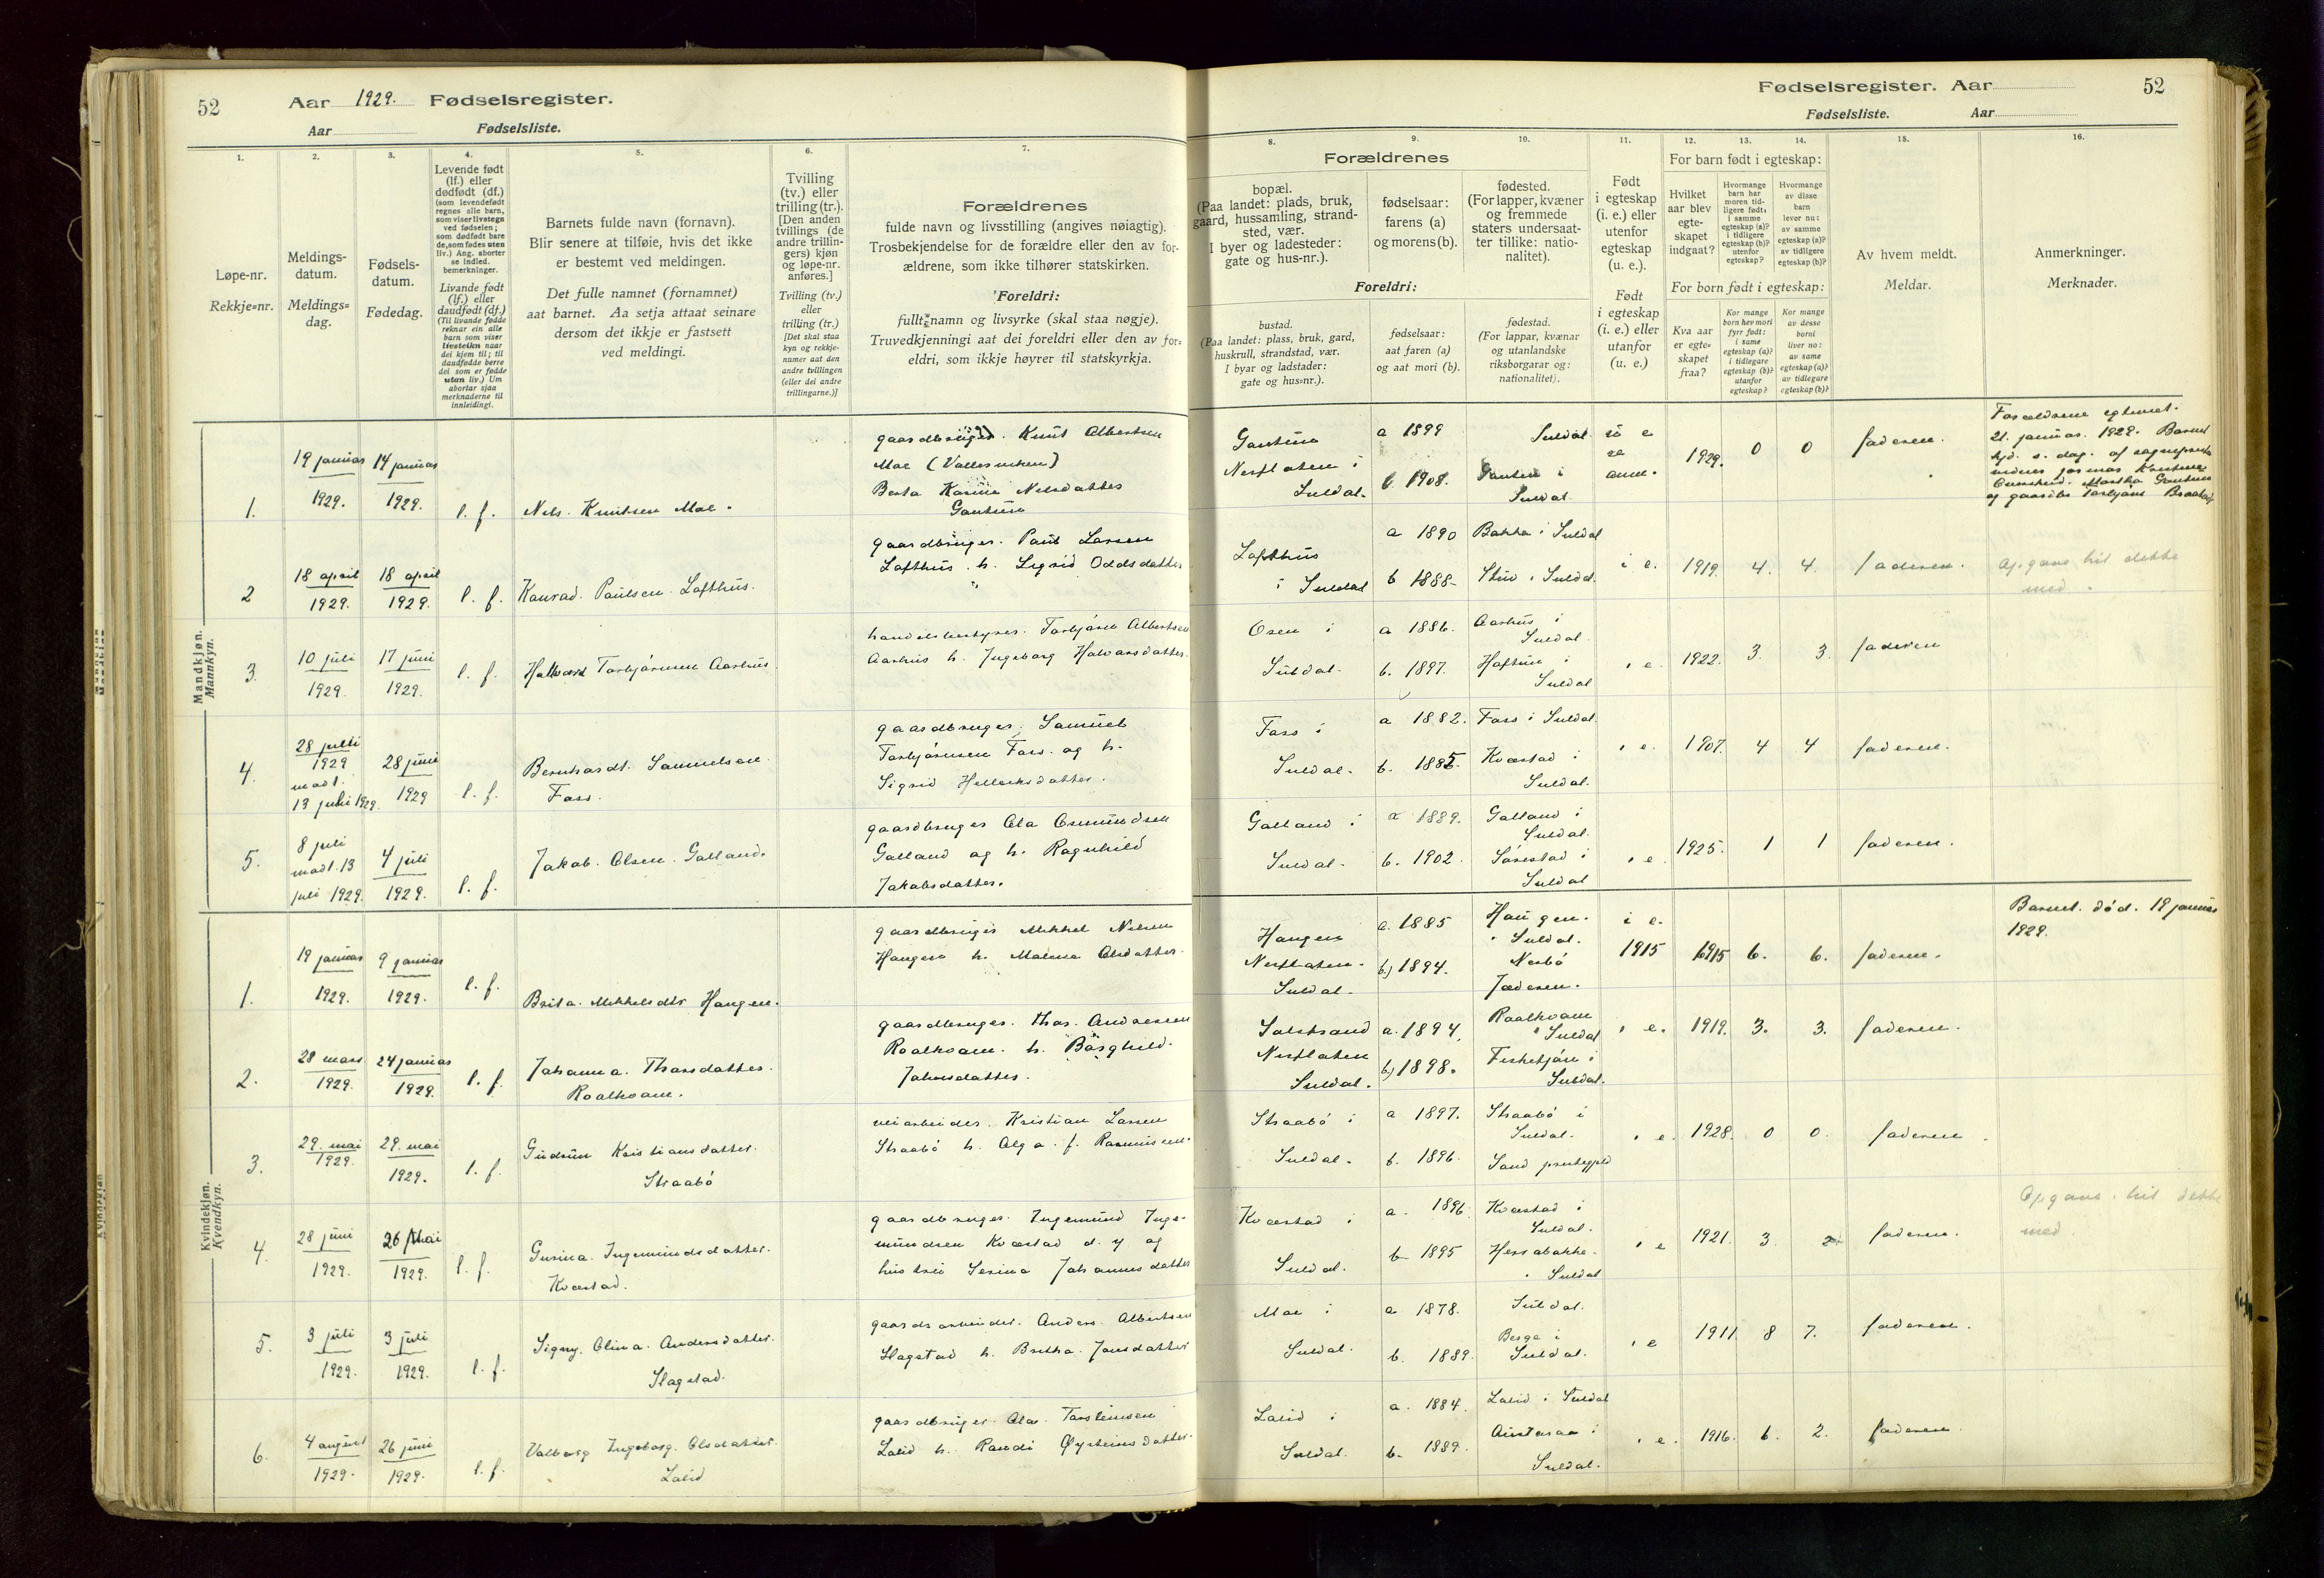 52
Aar 1929. Fødselsregister.
Aar
Fødselsliste.
1.
Løpe-nr.
Rekkje=nr.
2.
Meldings-
datum.
Meldings=
dag.
3.
Fødsels-
datum.
Fødedag.
4.
Levende født
(lf.) eller
dødfødt (df.)
(som levendefødt
regnes alle barn,
som viser livstegn
ved fødselen;
som dødfødt bare
de, som fødes uten
liv.) Ang. aborter
se indled.
bemerkninger.
Livande født
(lf.) eller
daudfødt (df.)
(Til livande fødde
reknar ein alle
barn som viser
livsteikn naar
dei kjem til; til
daudfødde berre
dei som er fødde
utan liv.) Um
abortar sjaa
merknaderne til
innleidingi.
5.
Barnets fulde navn (fornavn).
Blir senere at tilføie, hvis det ikke
er bestemt ved meldingen.
Det fulle namnet (fornamnet)
aat barnet. Aa setja attaat seinare
dersom det ikkje er fastsett
ved meldingi.
6.
Tvilling
(tv.) eller
trilling (tr.).
[Den anden
tvillings (de
andre trillin-
gers) kjøn
og løpe-nr.
anføres.]
Tvilling (tv.)
eller
trilling (tr.)
[Det skal staa
kyn og rekkje-
numer aat den
andre tvillingen
(eller dei andre
trillingarne.)]
7.
Forældrenes
fulde navn og livsstilling (angives nøiagtig).
Trosbekjendelse for de forældre eller den av for-
ældrene, som ikke tilhører statskirken.
Foreldri:
fullt namn og livsyrke (skal staa nøgje).
Truvedkjenningi aat dei foreldri eller den av for=
eldri, som ikkje høyrer til statskyrkja.
Mandkjøn.
Mannkyn.
1.
19 januar
1929.
14 januar
1929.
l. f.
Nils. Knutsen Moe.
gaardbruger. Knut Albertsen
Moe
Berta Karine Nilsdatter
Gautun
2
18 april
1929.
18 april
1929.
l. f.
Konrad. Paulsen. Lofthus.
gaardbruger. Paul Larsen
Lofthus. h. Sigrid Oddsdatter
"
3.
10 juli
1929.
17 juni
1929.
l. f.
Hallvard Torbjørnsen Aarhus.
handelsbestyrer. Torbjørn Albertsen
Aarhus h. Ingeborg Halvorsdatter.
4.
28 juli
1929
modt.
13 juli 1929.
28 juni
1929
l. f.
Bernhardt. Samuelsen.
Foss.
gaardbruger. Samuel
Torbjørnsen Foss. og h.
Sigrid Helleiksdatter.
5.
8 juli
modt. 13
juli 1929.
4 juli
1929.
l. f.
Jakob. Olsen. Galland.
gaardbruger Ola Osmundsen
Galland og h. Ragnhild
Jakobsdatter.
Kvindekjøn.
Kvendkyn.
1.
19 januar
1929.
9 januar
1929.
l. f.
Brita. Mikkelsdtr Haugen.
gaardbruger Mikkel Nilsen
Haugen h. Malena Olsdatter.
2.
28 mars
1929.
24 januar
1929.
l. f.
Johanna. Thorsdatter.
Roalkvam.
gaardbruger. Thor. Andresen
Roalkvam. h. Borghild.
Johnsdatter.
3.
29. mai
1929.
29. mai
1929.
l. f.
Gudrun Kristiansdatter.
Straabø
veiarbeider. Kristian Larsen
Straabø h. Olga. f. Rasmussen.
4.
28 juni
1929.
26 Mai
1929.
l. f.
Gurina. Ingemundsdatter.
Kvæstad.
gaardbruger. Ingemund Inge-
mundsen Kvæstad d. y og
hustru Serina Johannesdatter
5.
3 juli
1929.
3 juli
1929.
l. f.
Signy. Olina. Andersdatter.
Slagstad.
gaardsarbeider. Anders. Albertsen
Slagstad h. Bertha. Jonsdatter
6.
4 august
1929.
26 juni
1929.
l. f.
Valborg Ingeborg. Olsdatter.
Lalid
gaardbruger. Ola. Torsteinsen
Lalid h. Randi Øysteinsdatter.
Fødselsregister. Aar
52
Fødselsliste.
Aar
8.
Forældrenes
bopæl.
(Paa landet: plads, bruk,
gaard, hussamling, strand-
sted, vær.
I byer og ladesteder:
gate og hus-nr.).
Foreldri:
bustad.
(Paa landet: plass, bruk, gard,
huskrull, strandstad, vær.
I byar og ladstader:
gate og hus=nr.).
9.
fødselsaar:
farens (a)
og morens (b).
fødselsaar:
aat faren (a)
og aat mori (b).
10.
fødested.
(For lapper, kvæner
og fremmede
staters undersaat-
ter tillike: natio-
nalitet).
fødestad.
(For lappar, kvænar
og utanlandske
riksborgarar og:
nationalitet).
11.
Født
i egteskap
(i. e.) eller
utenfor
egteskap
(u. e.).
Født
i egteskap
(i. e.) eller
utanfor
(u. e.)
12.
13.
14.
For barn født i egteskap:
Hvilket
aar blev
egte-
skapet
indgaat?
Hvormange
barn har
moren tid-
ligere født:
i samme
egteskap (a)?
i tidligere
egteskap (b)?
utenfor
egteskap?
Hvormange
av disse
barn
lever nu:
av samme
egteskap (a)?
av tidligere
egteskap (b)?
For born født i egteskap:
Kva aar
er egte=
skapet
fraa?
Kor mange
born hev mori
fyrr født:
i same
egteskap (a)?
i tidlegare
egteskap (b)?
utanfor
egteskap?
Kor mange
av desse
borni
liver no:
av same
egteskap (a)?
av tidlegare
egteskap (b)?
15.
Av hvem meldt.
Meldar.
16.
Anmerkninger.
Merknader.
Gautun
Nesflaten i
Suldal.
a 1899
b 1908.
Suldal.
Gautun i
Suldal.
1929.
0
0
faderen.
Forældrene egteviet.
21. januar. 1929. Barnet
Lofthus
i Suldal
a 1890
b 1888.
Bakka i Suldal
Stuv i Suldal.
i e.
1919.
4.
4.
faderen.
Opgave hit dette
med.
Osen i
Suldal.
a 1886.
b. 1897.
Aarhus i
Suldal.
Haftun i
Suldal
i e.
1922.
3.
3.
faderen
Foss i
Suldal.
a 1882.
b. 1885.
Foss i Suldal.
Kvæstad i
Suldal.
i e.
1907.
4
4
faderen.
Galland i
Suldal.
a 1889.
b. 1902.
Galland i
Suldal.
Sørestad i
Suldal
i e.
1925.
1
1
faderen.
Haugen
Nesflaten.
Suldal.
a. 1885
b) 1894.
Haugen.
i Suldal.
Nesbø
Jæderen.
i e.
1915
1915
6.
6.
faderen.
Barnet. død. 19 januar
1929.
Solstrand
Nesflaten
Suldal.
a. 1894.
b) 1898.
Roalkvam
i Suldal
Fisketjøn i
Suldal.
i e.
1919.
3.
3.
faderen.
Straabø i
Suldal.
a 1897.
b. 1896.
Straabø i
Suldal.
Sand prestegjeld
i e.
1928.
0
0.
faderen.
Kvæstad i
Suldal.
a. 1896.
b 1895
Kvæstad i
Suldal.
Hessabakke.
i Suldal
i e
1921.
3.
faderen.
Opgave. hit dette
med.
Moe i
Suldal.
a 1878.
b. 1889.
Suldal.
Berge i
Suldal.
i e
1911.
8
7.
faderen.
Lalid i
Suldal.
a. 1884.
b. 1889.
Lalid i Suldal
Austaraa i
Suldal.
i e.
1916.
6.
2.
faderen.